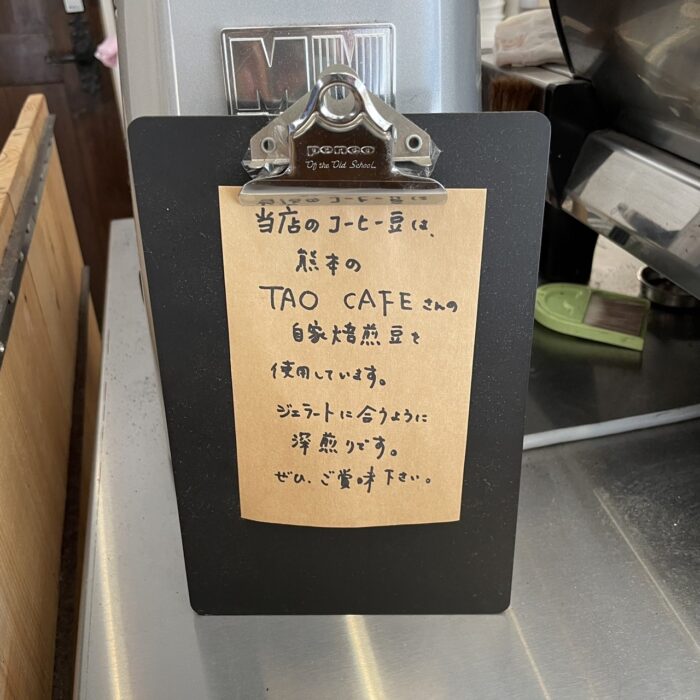 penco
"Off the Old School"
当店のコーヒー豆は、
熊本の
TAO CAFEさんの
自家焙煎豆を
使用しています。
ジェラートに合うように
深煎りです。
ぜひ、ご賞味下さい。